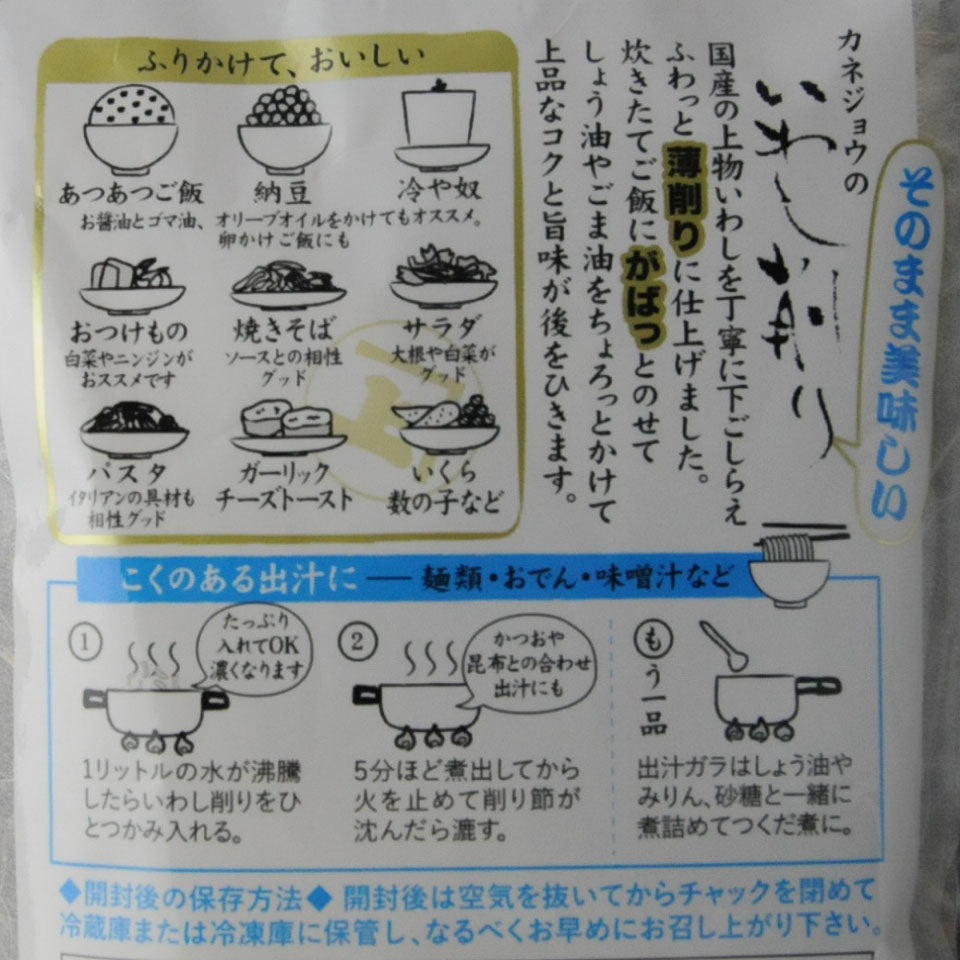 カネジョウの
いわし削り
そのまま美味しい
国産の上物いわしを丁寧に下ごしらえ
ふわっと薄削りに仕上げました。
炊きたてご飯にがばっとのせて
しょう油やごま油をちょろっとかけて
上品なコクと旨味が後をひきます。
ふりかけて、おいしい
あつあつご飯
納豆
冷や奴
お醤油とゴマ油、オリーブオイルをかけてもオススメ。
卵かけご飯にも
おつけもの
白菜やニンジンが
おススメです
焼きそば
ソースとの相性
グッド
サラダ
大根や白菜が
グッド
パスタ
イタリアンの具材も
相性グッド
ガーリック
チーズトースト
いくら
数の子など
こくのある出汁に — 麺類・おでん・味噌汁など
1
たっぷり
入れてOK
濃くなります
1リットルの水が沸騰
したらいわし削りをひ
とつかみ入れる。
2
かつおや
昆布との合わせ
出汁にも
5分ほど煮出してから
火を止めて削り節が
沈んだら漉す。
もう一品
出汁ガラはしょう油や
みりん、砂糖と一緒に
煮詰めてつくだ煮に。
◆開封後の保存方法◆ 開封後は空気を抜いてからチャックを閉めて
冷蔵庫または冷凍庫に保管し、なるべくお早めにお召し上がり下さい。